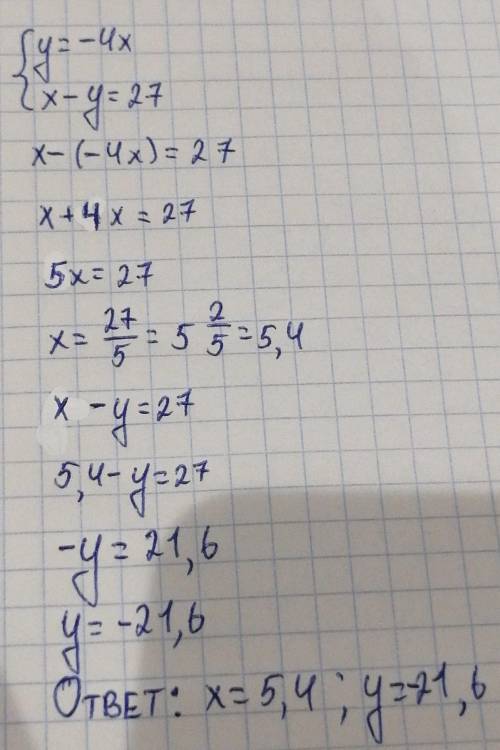 y = -4x
x - y = 27
x - (-4x) = 27
x + 4x = 27
5x = 27
x = 27/5 = 5 2/5 = 5,4
x - y = 27
5,4 - y = 27
-y = 21,6
y = -21,6
Ответ: x = 5,4 ; y = -21,6